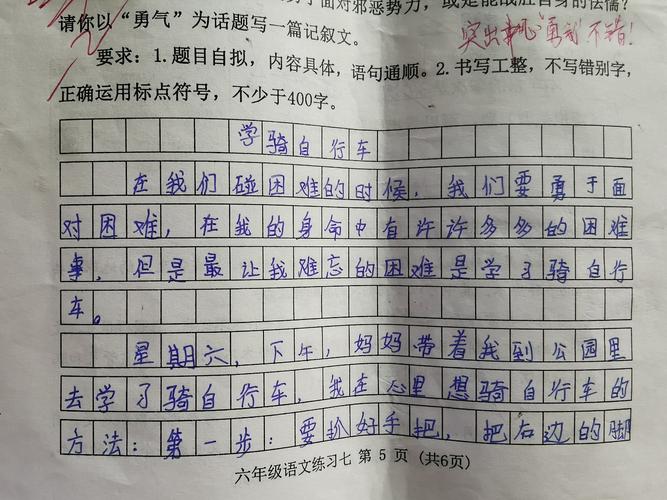 手面对邪恶势力，或是能战胜自身的怯懦？
请你以“勇气”为话题写一篇记叙文。
突出中心“勇敢”不错！
要求：1.题目自拟，内容具体，语句通顺。2.书写工整，不写错别字，
正确运用标点符号，不少于400字。
学骑自行车
在我们碰困难的时候，我们要勇于面
对困难，在我的身命中有许许多多的困难
事，但是最让我难忘的困难是学了骑自行
车。
星期六，下午，妈妈带着我到公园里
去学了骑自行车，我在心里想骑自行车的
方法：第一步：要扒好手把，把右边的脚
六年级语文练习七 第 5 页 (共6页)